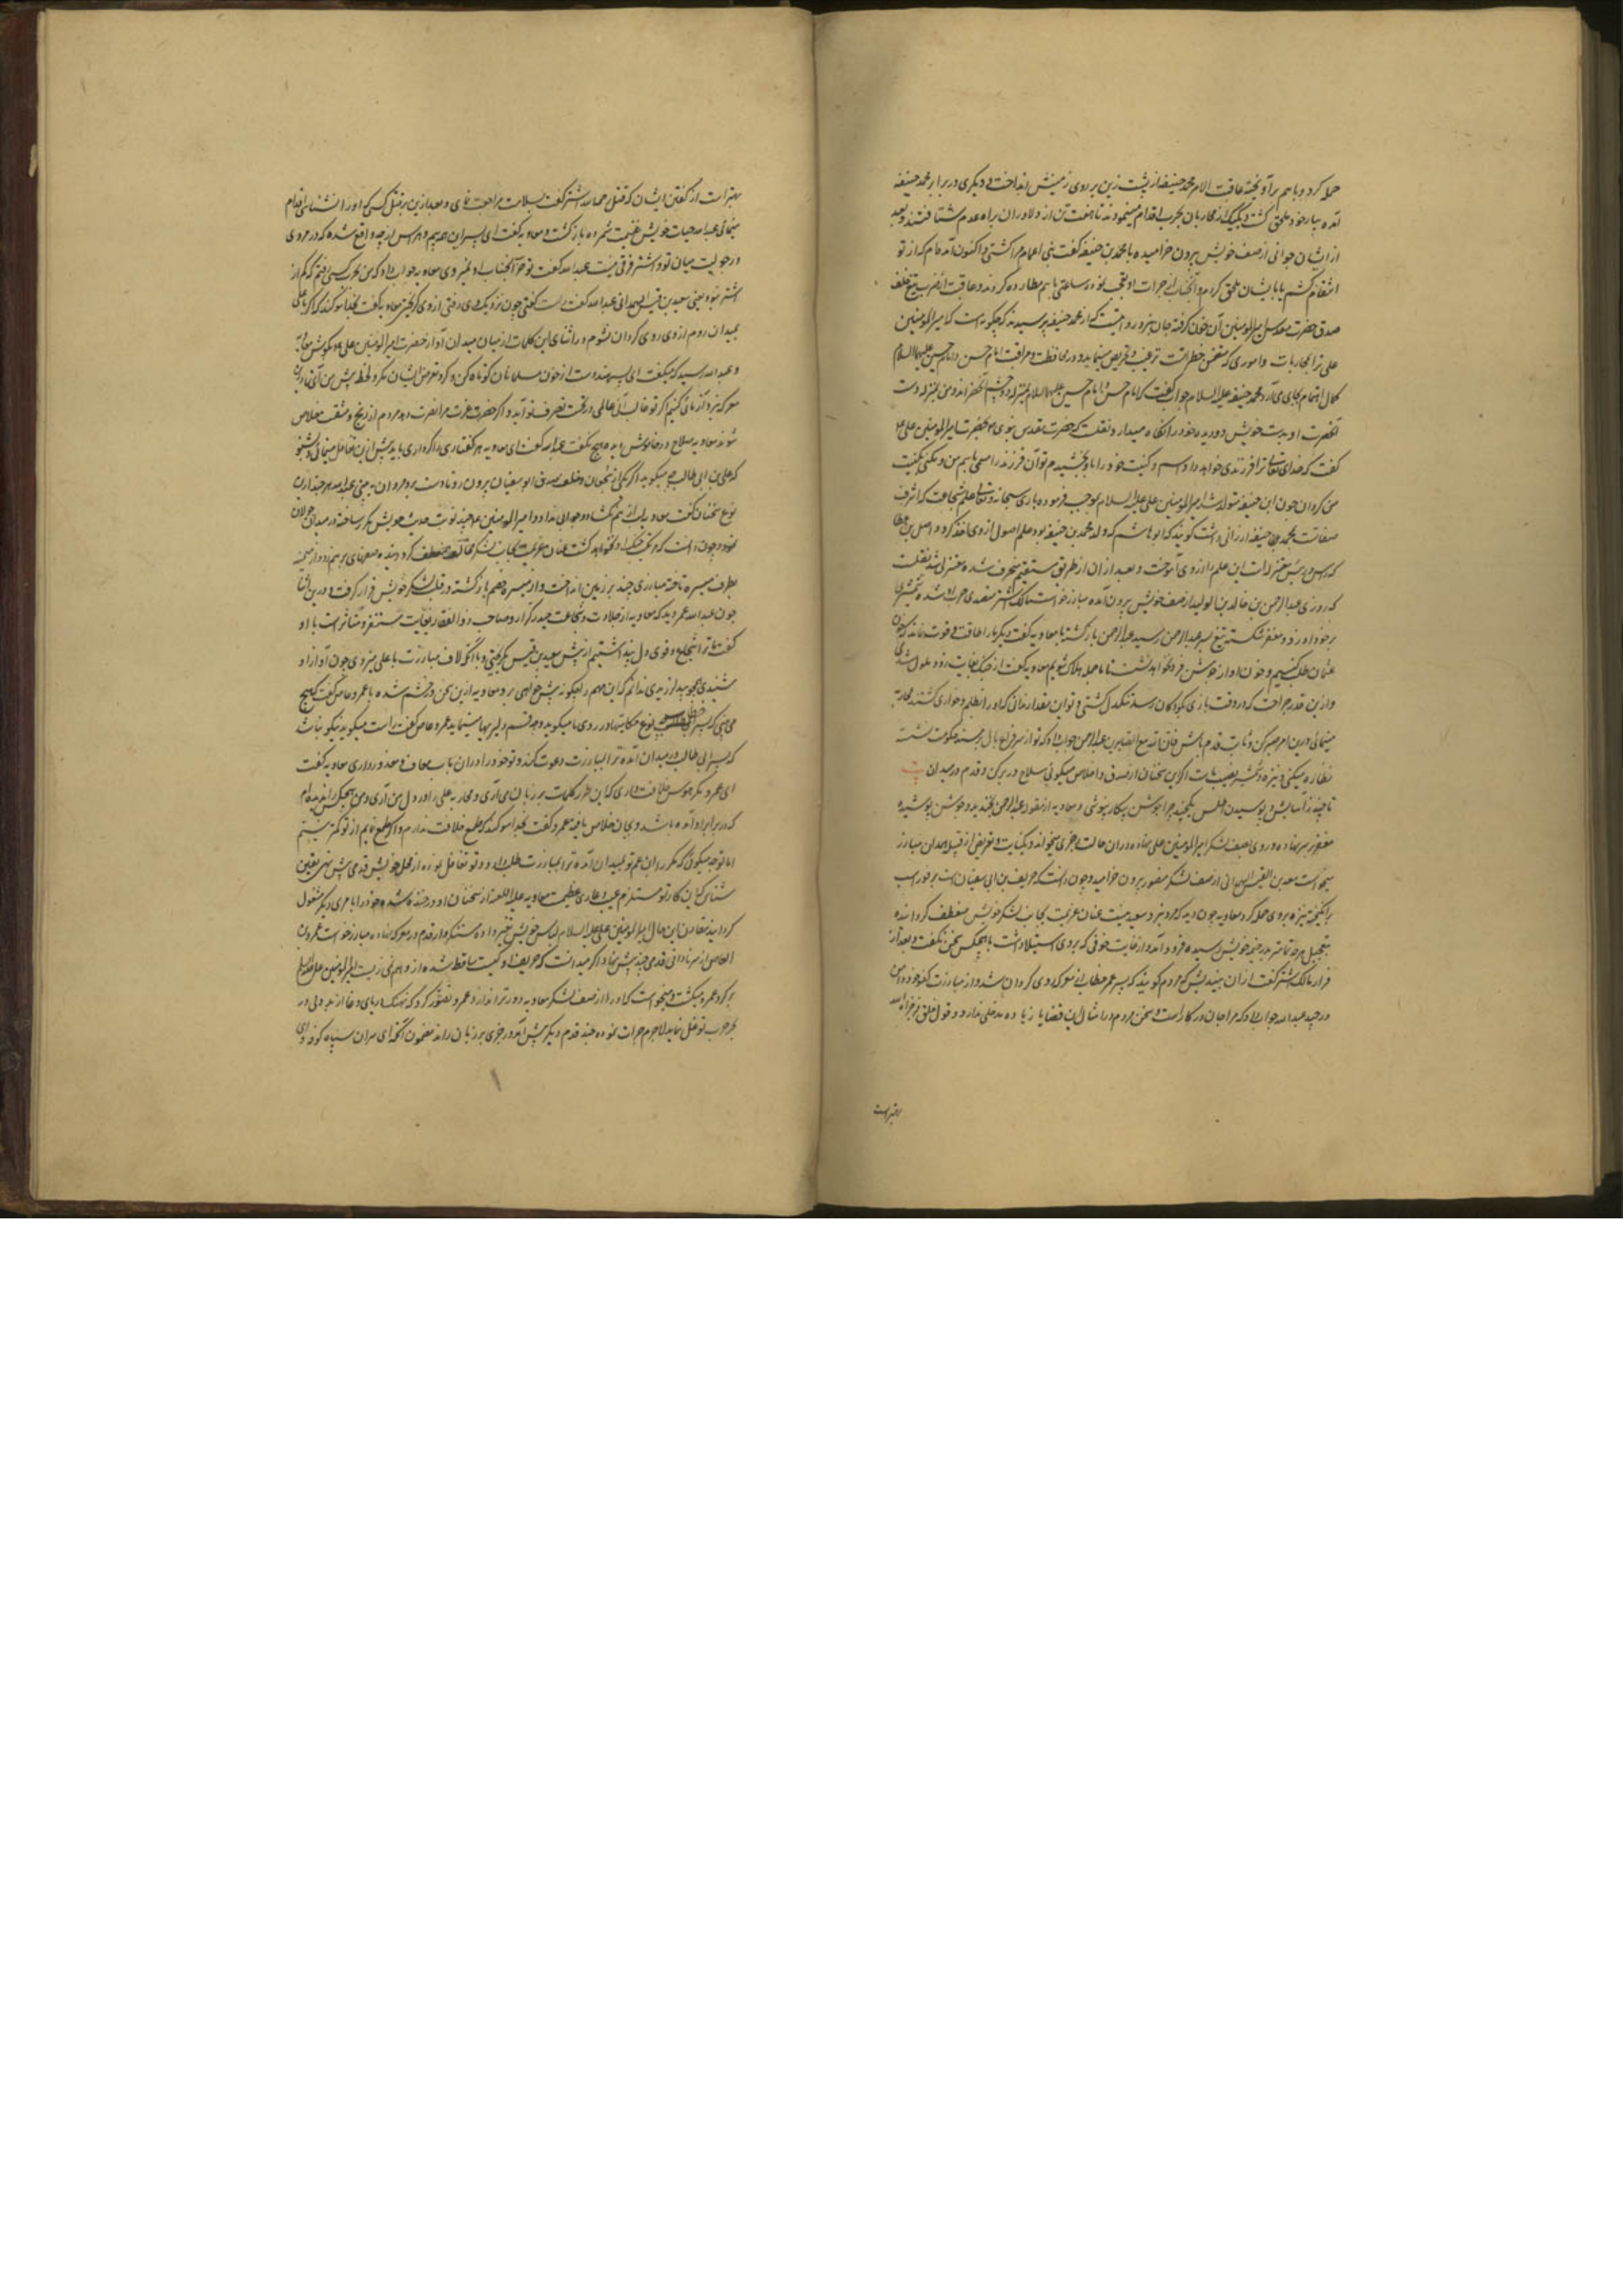 حمله کرد و باهم برآویخته عاقبت الامر محمد حنیفه از پشت زین بر روی زمینش انداخت و دیگری در برابر محمد حنیفه
آمده بیار خود ملحق گشت و یکیک از محاربان بحرب اقدام مینمودند تا هفت تن از دلاوران براه عدم شتافتند و بعد
از ایشان جوانی از صف خویش بیرون خرامیده با محمد بن حنیفه گفت بنی اعمام مرا کشتی و اکنون آمده‌ام که از تو
انتقام کشم یا بایشان ملحق کردم و آنجناب از جرات او تعجب نموده ساعتی باهم مطارده کردند و عاقبت از ضرب تیغ خلف
صدق حضرت مقدس امیرالمومنین آن خون گرفته جان نبرد و روایتست که از محمد حنیفه پرسیدند که چگونه است که امیرالمومنین
علی ترا بمحاربات و اموری که متضمن خطراتست ترغیب و تحریص مینماید و در محافظت و مراقبت امام حسن و امام حسین علیهماالسلام
کمال اهتمام بجای می‌آرد محمد حنیفه علیه السلام جواب گفت که امام حسن و امام حسین علیهماالسلام بمنزله دو چشم آنحضراند و من بمنزله دست
آنحضرت او بدست خویش دو دیده خود را نگاه میدارد و نقلست که حضرت مقدس نبوی بحضرت امیرالمومنین علی
گفت که خدای تعالی ترا فرزندی خواهد داد و اسم و کنیت خود را باو بخشیدم تو آن فرزند را مسمی باسم من و مکنی بکنیت
من کردان چون ابن حنیفه متولد شد امیرالمومنین علی علیه السلام بموجب فرموده باری سبحانه و تعالی علم شجاعت که اشرف
صفاتست بمحمد بن حنیفه ارزانی داشت گویند که ابو هاشم که ولد محمد بن حنیفه بود علم اصول از وی اخذ کرد و واصل بن عطا
که رییس معتزله است این علم را از وی آموخت و بعد از آن از طریق مستقیم منحرف شده معتزلی شد نقلست
که روزی عبدالرحمن بن خالد بن الولید از صف خویش بیرون آمده مبارز خواست مالک اشتر متصدی حرب او شده شمشیری
بر خود او زد و مغفر شکسته تیغ بسر عبدالرحمن رسید عبدالرحمن بازگشته با معاویه گفت دیگر مارا طاقت و قوت نماند که خون
عثمان طلب کنیم و خون او از جوش فرو نخواهد نشست تا ما جمله هلاک شویم معاویه گفت از جنگ بغایت زود ملول شدی
و از این قدر جراحت که در وقت بازی کودکان رسد تنگدل گشتی و تو این مقدار ندانی که او را بظلم و خواری کشتند محاربه
مینمائی درین امر صبر کن و ثابت قدم باش فان الله مع الصابرین عبدالرحمن جواب داد که تو از سر فراغ بال بر مسند حکومت نشسته
نظاره میکنی و نیزه و شمشیر نصیب ماست اگر این سخنان از صدق و اخلاص میگوئی سلاح در بر کن و قدم در میدان
تا چند ز آسایش و پوسیدن اطلس یکچند چرا جوشن پیکار نپوشی و معاویه از مقوله عبدالرحمن بخندید و جوشن پوشیده
مغفر بر سر نهاده و روی بصف لشکر امیرالمومنین علی نهاده و در آن حالت رجزی میخواند و بکنایت و تعریض از قبیله همدان مبارز
میخواست سعد بن القیس الهمدانی از صف لشکر منصور بیرون خرامید و چون دانست که حریف بن ابی سفیان است بر فور اسب
برانگیخته نیزه بر وی حمله کرد معاویه چون دید که مرد نبرد سعید نیست عنان عزیمت بجانب لشکر خویش منعطف گردانیده
بتعجیل هرچه تمامتر بدر خیمه خویش رسیده فرود آمد و از غایت خوفی که بر وی استیلا داشت با هیچکس سخن نگفت و بعد از
فرار مالک اشتر گفت از آن میندیش که مردم گویند که پسر عمر خطاب از معرکه روی گردان شد و از مبارزت
در چید عبدالله جواب داد که مرا جان در کار است و سخن مردم در امثال این قضایا زیاده مدخلی ندارد و قول خلق
بهتر است
بهتر است از گفتن ایشان که قتل رحمه الله اشتر گفت بسلامت مراجعت نمای و بعد ازین بر قتل کسی که او را نشناسی اقدام
منمائی عبدالله حیات خویش غنیمت شمرده بازگشت و معاویه گفت ای پسر این همه بیم و هراس از چه واقع شده که در مردی
و رجولیت میان تو و اشتر فرقی نیست عبدالله گفت تو چرا بجناب او نمیروی معاویه جواب داد که من بحرب کسی رفتم که کم از
اشتر نبود یعنی سعید بن قیس الهمدانی عبدالله گفت راست گفتی چون نزدیک وی رفتی از وی گریختی معاویه گفت بخدا سوگند که اگر با علی
بمیدان روم از وی روی گردان نشوم در اثنای این کلمات از میان میدان آواز حضرت امیرالمومنین علی بگوش معاویه
و عبدالله رسید که میگفت ای پسر هند دست از خون مسلمانان کوتاه کن و گرد تعرض ایشان مگرد و لحظه پیش من آی تا در این
معرکه نبرد آزمائی کنیم اگر تو غالب آئی عالمی در تحت تصرف تو آید و اگر حضرت عزت مرا نصرت دهد مردم از رنج و مشقت خلاص
شوند معاویه صلاح در خاموشی دیده هیچ نگفت عبدالله گفت ای معاویه هر گفتاری را کرداری باید پیش از این تغافل منمائی و بشنو
که علی بن ابی طالب چه میگوید اگر یکی از شجعان و خلف صدق ابو سفیان بیرون رو و دادست برد مردان بده عبدالله هر چند ازین
نوع سخنان گفت معاویه لب از هم نگشاد و جوابی نداد و امیرالمومنین علی چند نوبت حدیث خویش مکرر ساخته در میدان جولان
نمود و چون دانست که کسی بجنگ او نخواهد گشت عنان عزیمت بجانب لشکر مخالف منعطف گردانیده صفهای بر هم زد و از میمنه
بطرف میسره تاخته مبارزی چند بر زمین انداخت و از میسره خصم بازگشته در قلب لشکر خویش قرار گرفت و درین اثنا
چون عبدالله عمر دید که معاویه از جلادت و شجاعت حیدر کرار و صاحب ذوالفقار بغایت متنفر و متاثر است با او
گفت ما ترا شجاع و قوی دل پنداشتیم از پیش سعید بن قیس بگریختی و با آنکه لاف مبارزت با علی میزدی چون آواز او
شنیدی چو بید لرزیدی ندانم که این مهم را چگونه پیش خواهی برد معاویه ازین سخن در خشم شده با عمرو عاص گفت که هیچ
می‌بینی که پسر خطاب نوع حکایتها در روی ما میگوید و چه قسم دلیریها مینماید عمرو عاص گفت راست میگوید نیکو نباشد
که پسر ابی طالب در میدان آمده ترا بمبارزت دعوت کند و تو خود را در آن باب معاف و معذور داری معاویه گفت
ای عمرو مگر هوس خلافت داری که این طرز کلمات بر زبان می‌آری و محاربه علی را در دل من آری و من هیچکس را ندیده‌ام
که در برابر او آمده باشد و بجان خلاص یافته عمرو گفت بخدا سوگند که طمع خلافت ندارم و اگر طمع نمایم از تو کمتر نیستم
اما توجه میگوئی که مکرر ابن عم تو بمیدان آمده ترا بمبارزت طلب داد و تو تغافل نموده از محل خویش قدمی پیش ننهی یقین
شناس که این کار تو مستلزم عیب و عاری عظیمست معاویه علیه اللعنه از سخنان او در خنده شده خود را بامری دیگر مشغول
گردانید مقارن این حال امیرالمومنین علی علیه السلام لباس خویش تغییر داده متنکروار قدم در معرکه نهاده مبارز خواست عمرو بن
العاص از سر نادانی قدمی چند پیش نهاد اگر میدانست که حریف او کیست ساقط شده از واهمه نمی‌زیست امیرالمومنین علی علیه السلام
بر گرد عمرو میگشت و میخواست که او را از صف لشکر معاویه دورتر اندازد عمرو تصور کرد که نهنگ دریای وغا از بددلی در
بحر حرب توغل نماید لاجرم جرات نموده چند قدم دیگر پیش آمد و رجزی بر زبان راند مضمون آنکه ای سران سپاه کوفه و ای